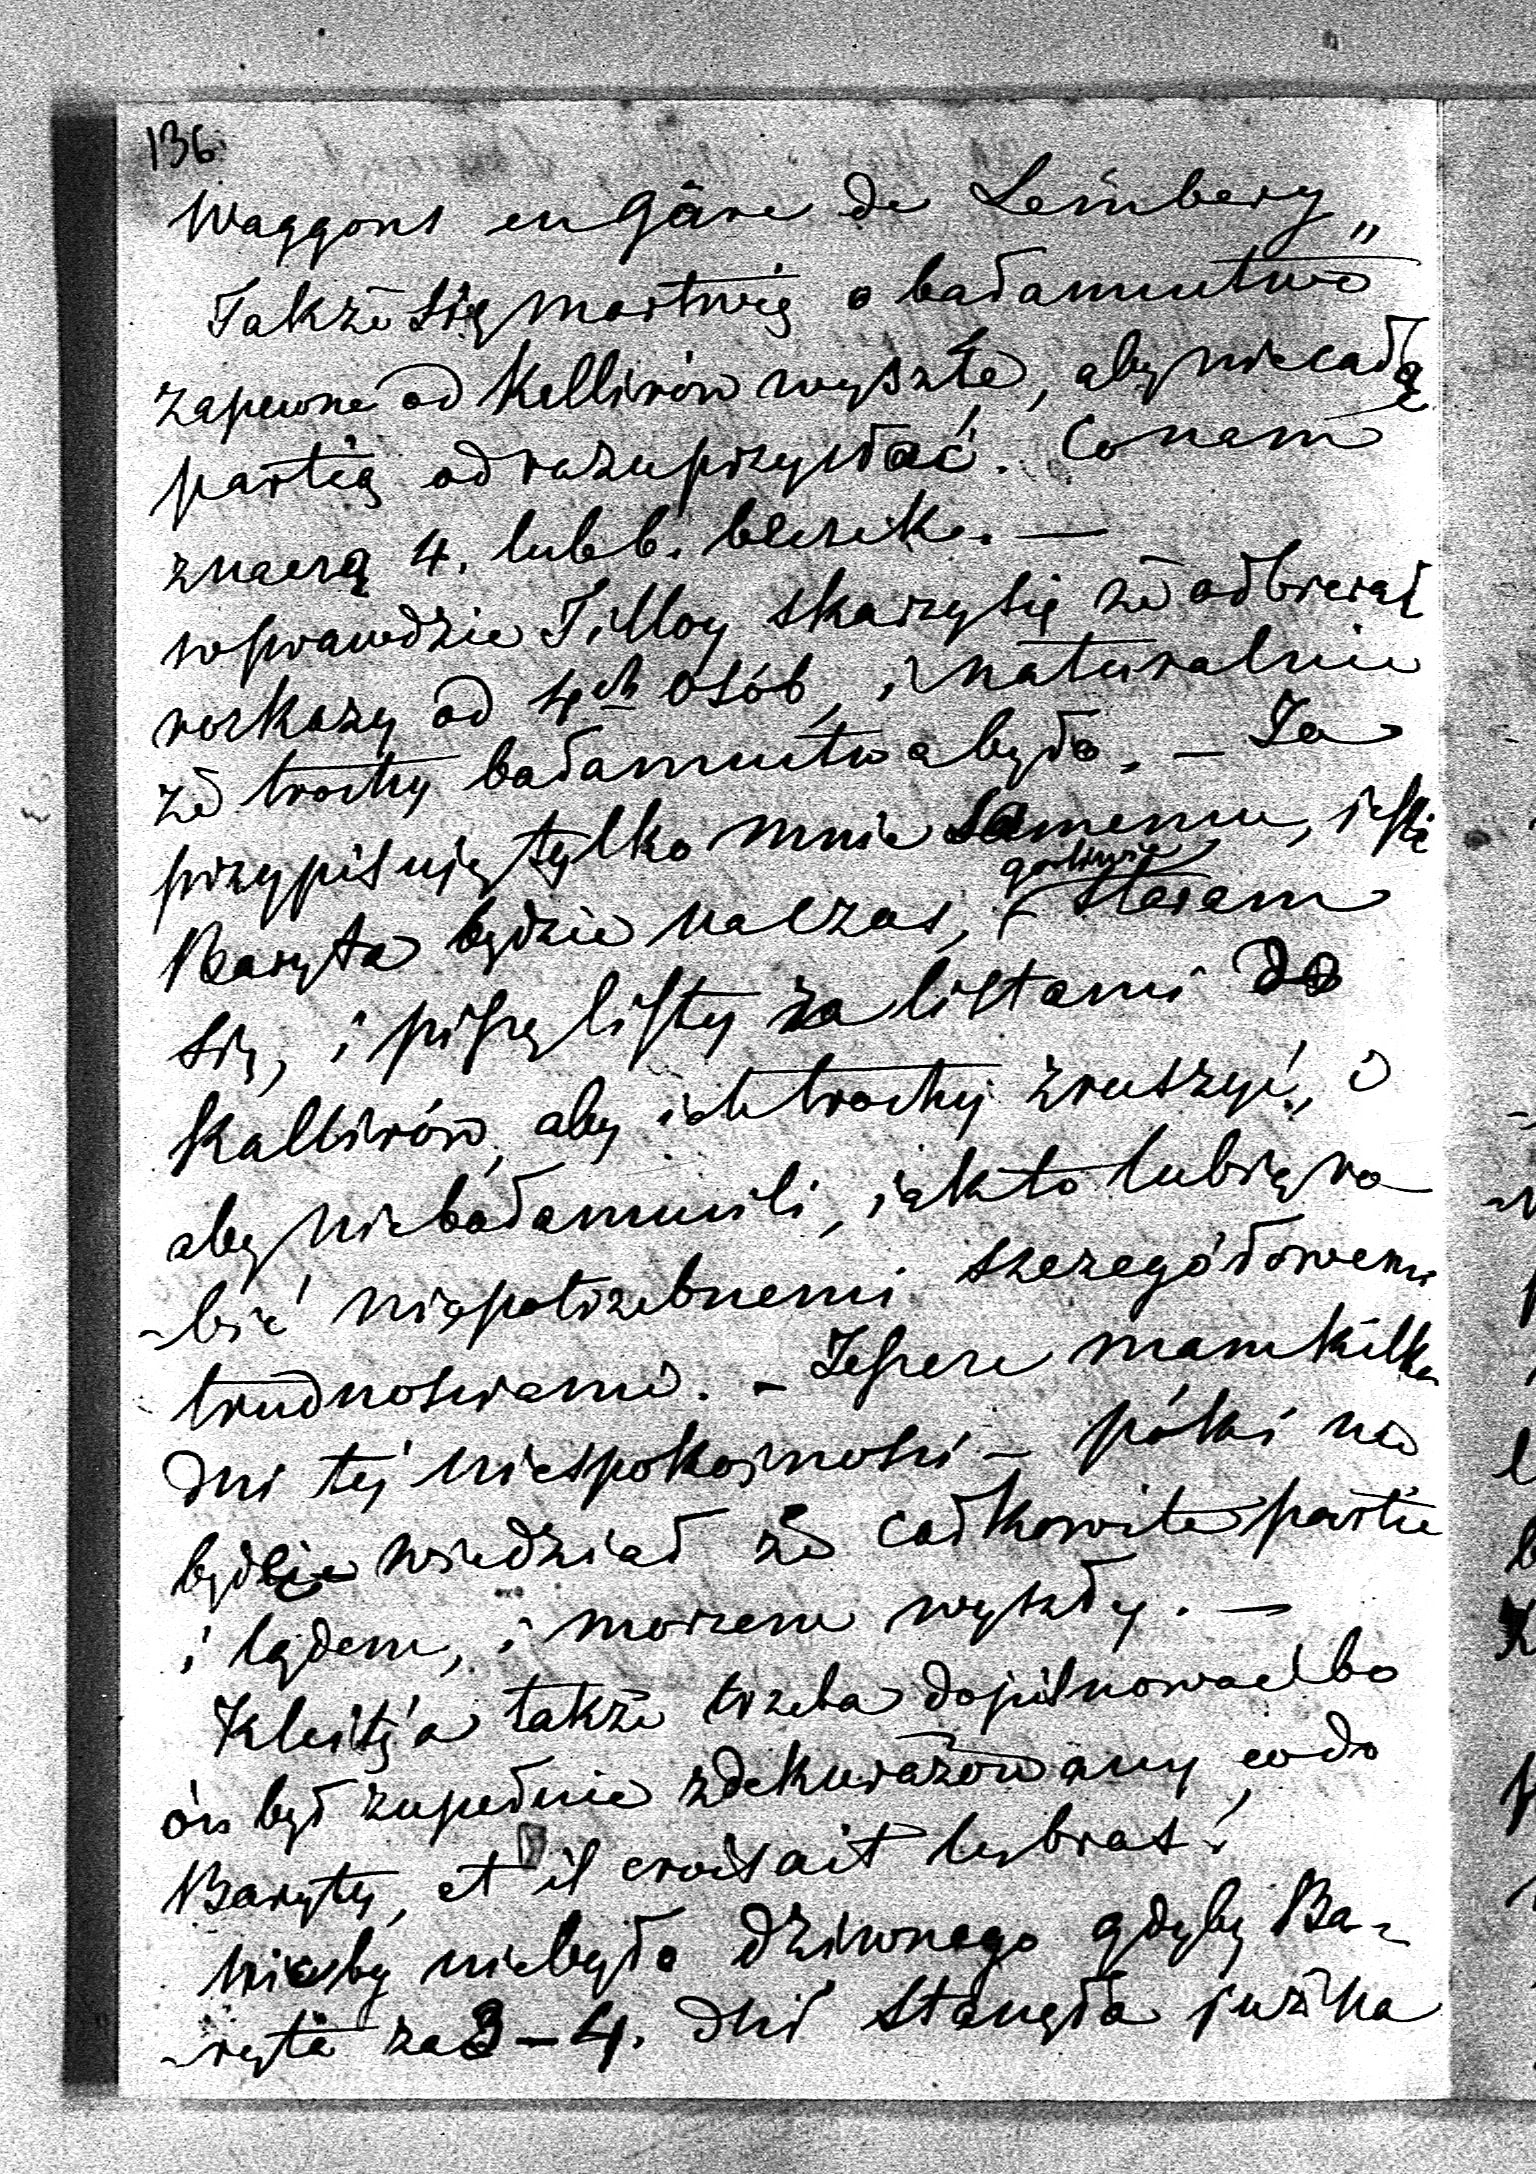 136
Waggons en Gâre de Lemberg„
Także się martwię o bałamuctwo
zapewne od Kellirów wyszłe, aby nie całą
partią od razu przysłać. Co nam
znaczą 4. lub 6. beczek. —
wprawdzie Tilloy skarzy się że odbierał
roskazy od 4ch osób, i naturalnie
że trochy bałamuctwa było. — Ja
przypisuję tylko mnie samemu, jeśli
Baryta będzie na czas, gorliwie staram
się, i piszę listy za listami do
Kallirów, aby ich trochy zruszyć, i
aby nie bałamucili, jak to lubią ro-
-bić niepotrzebnemi szczegółowemi
trudnosciami. – Jeszcze mam kilka
dni tej niespokojnosci – póki nie
będzie wiedział że całkowite partie
i lądem, i morzem wyszły. —
Kleitz'a także trzeba dopilnować bo
ón był zupełnie zdekurażowany, co do
Baryty, et il croisait les bras!
nicby niebyło dziwnego gdyby Ba-
-ryta za 3–4. dni stanęła już na